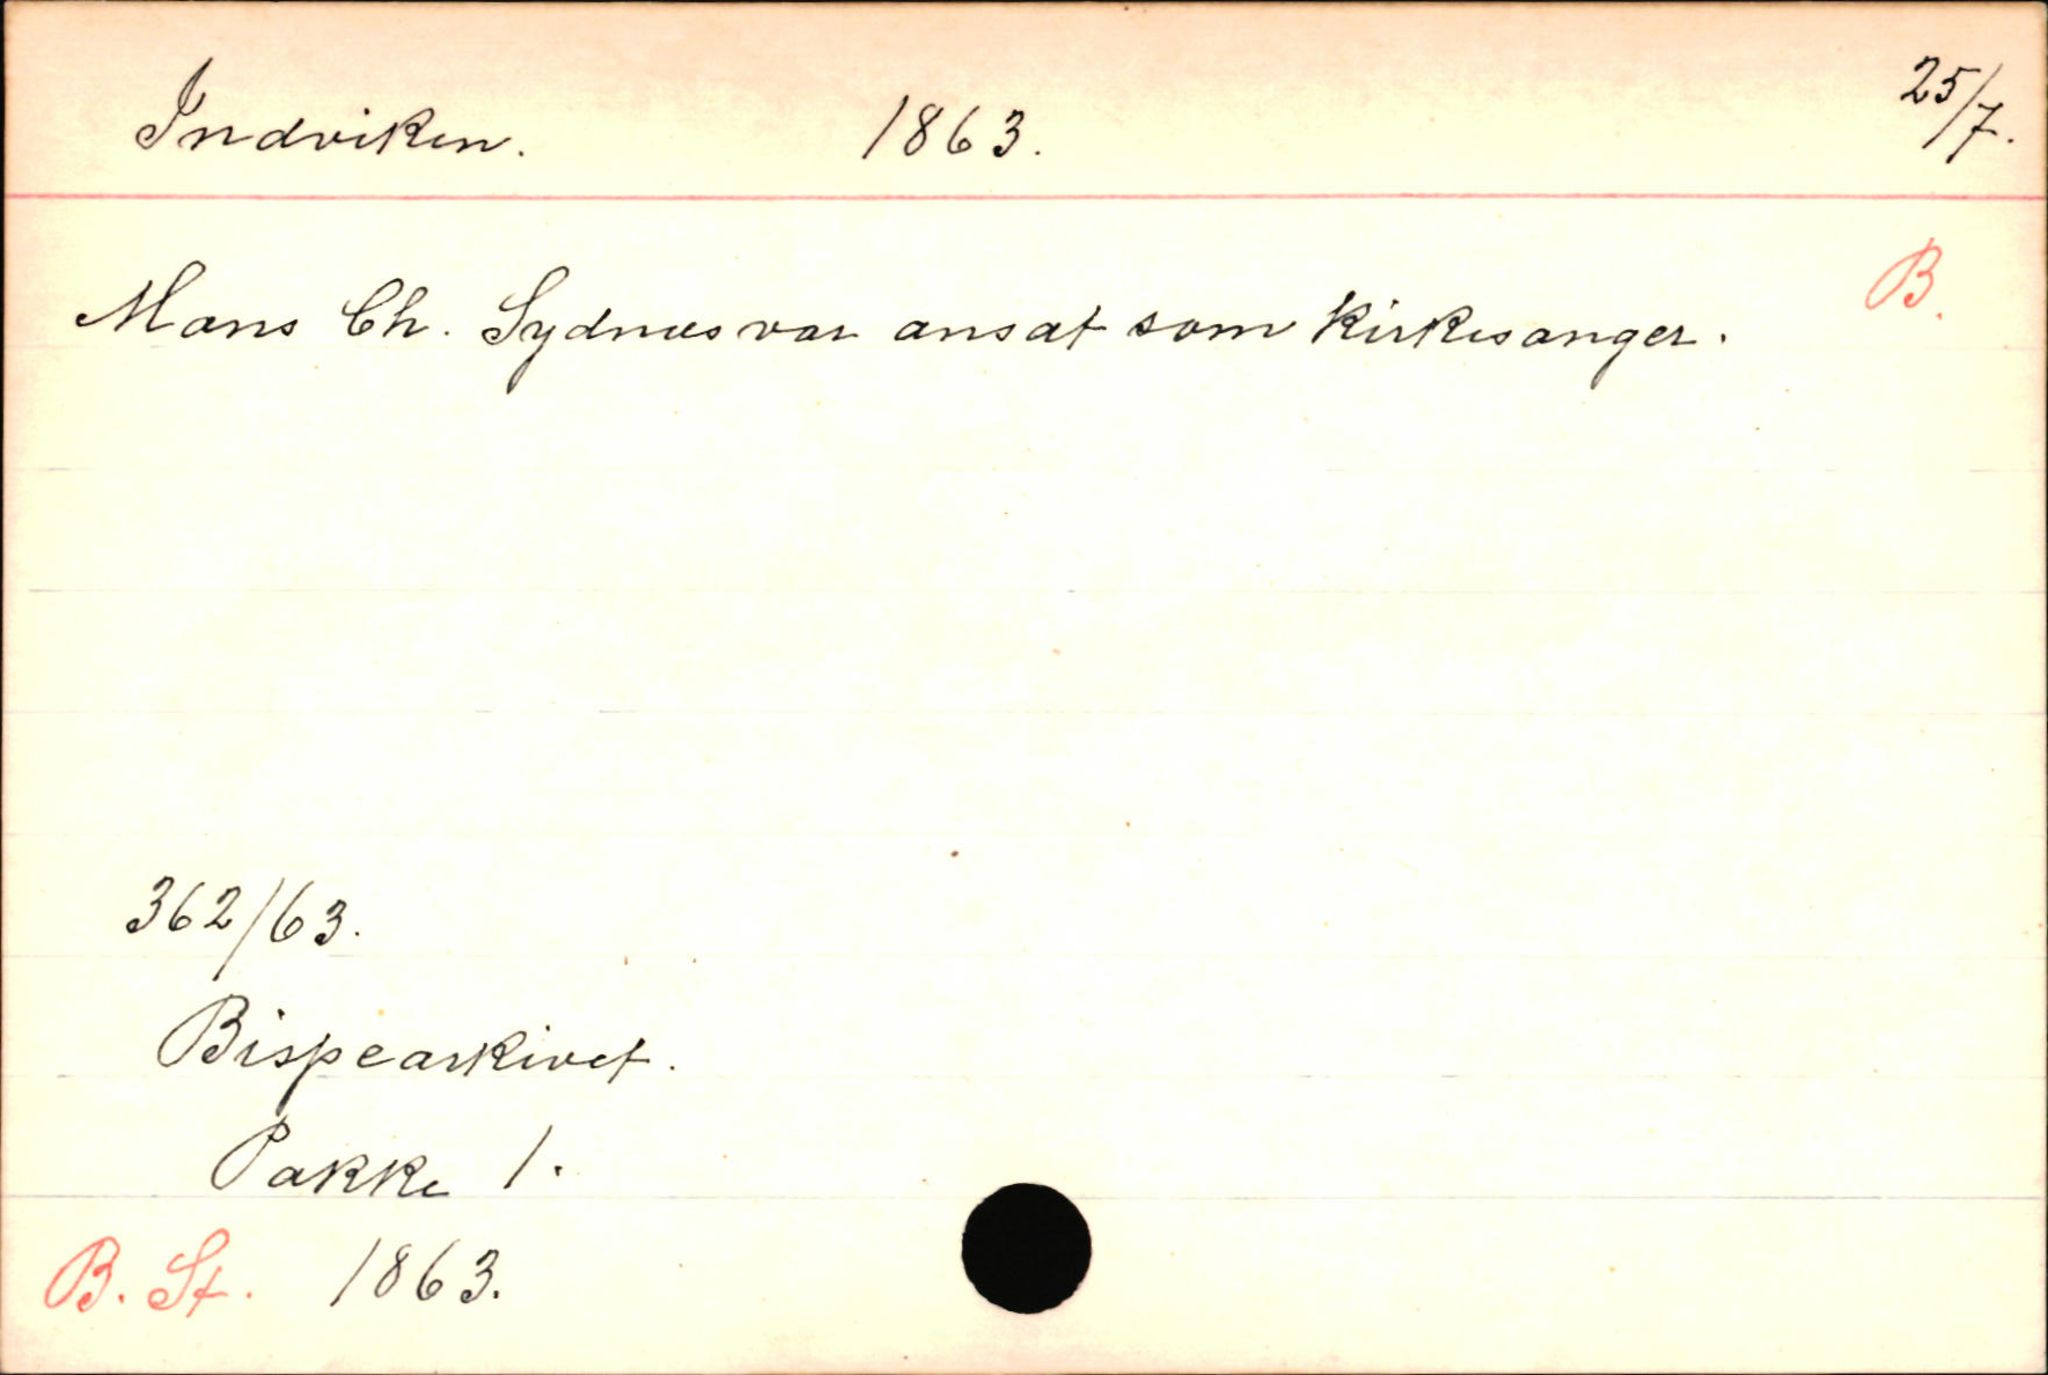 Indviken. 1863. 25/7.
B.
Mons Ch. Sydnæs var ansat som Kirkesanger.
362/63.
Bispearkivet.
Pakke 1.
B. St. 1863.